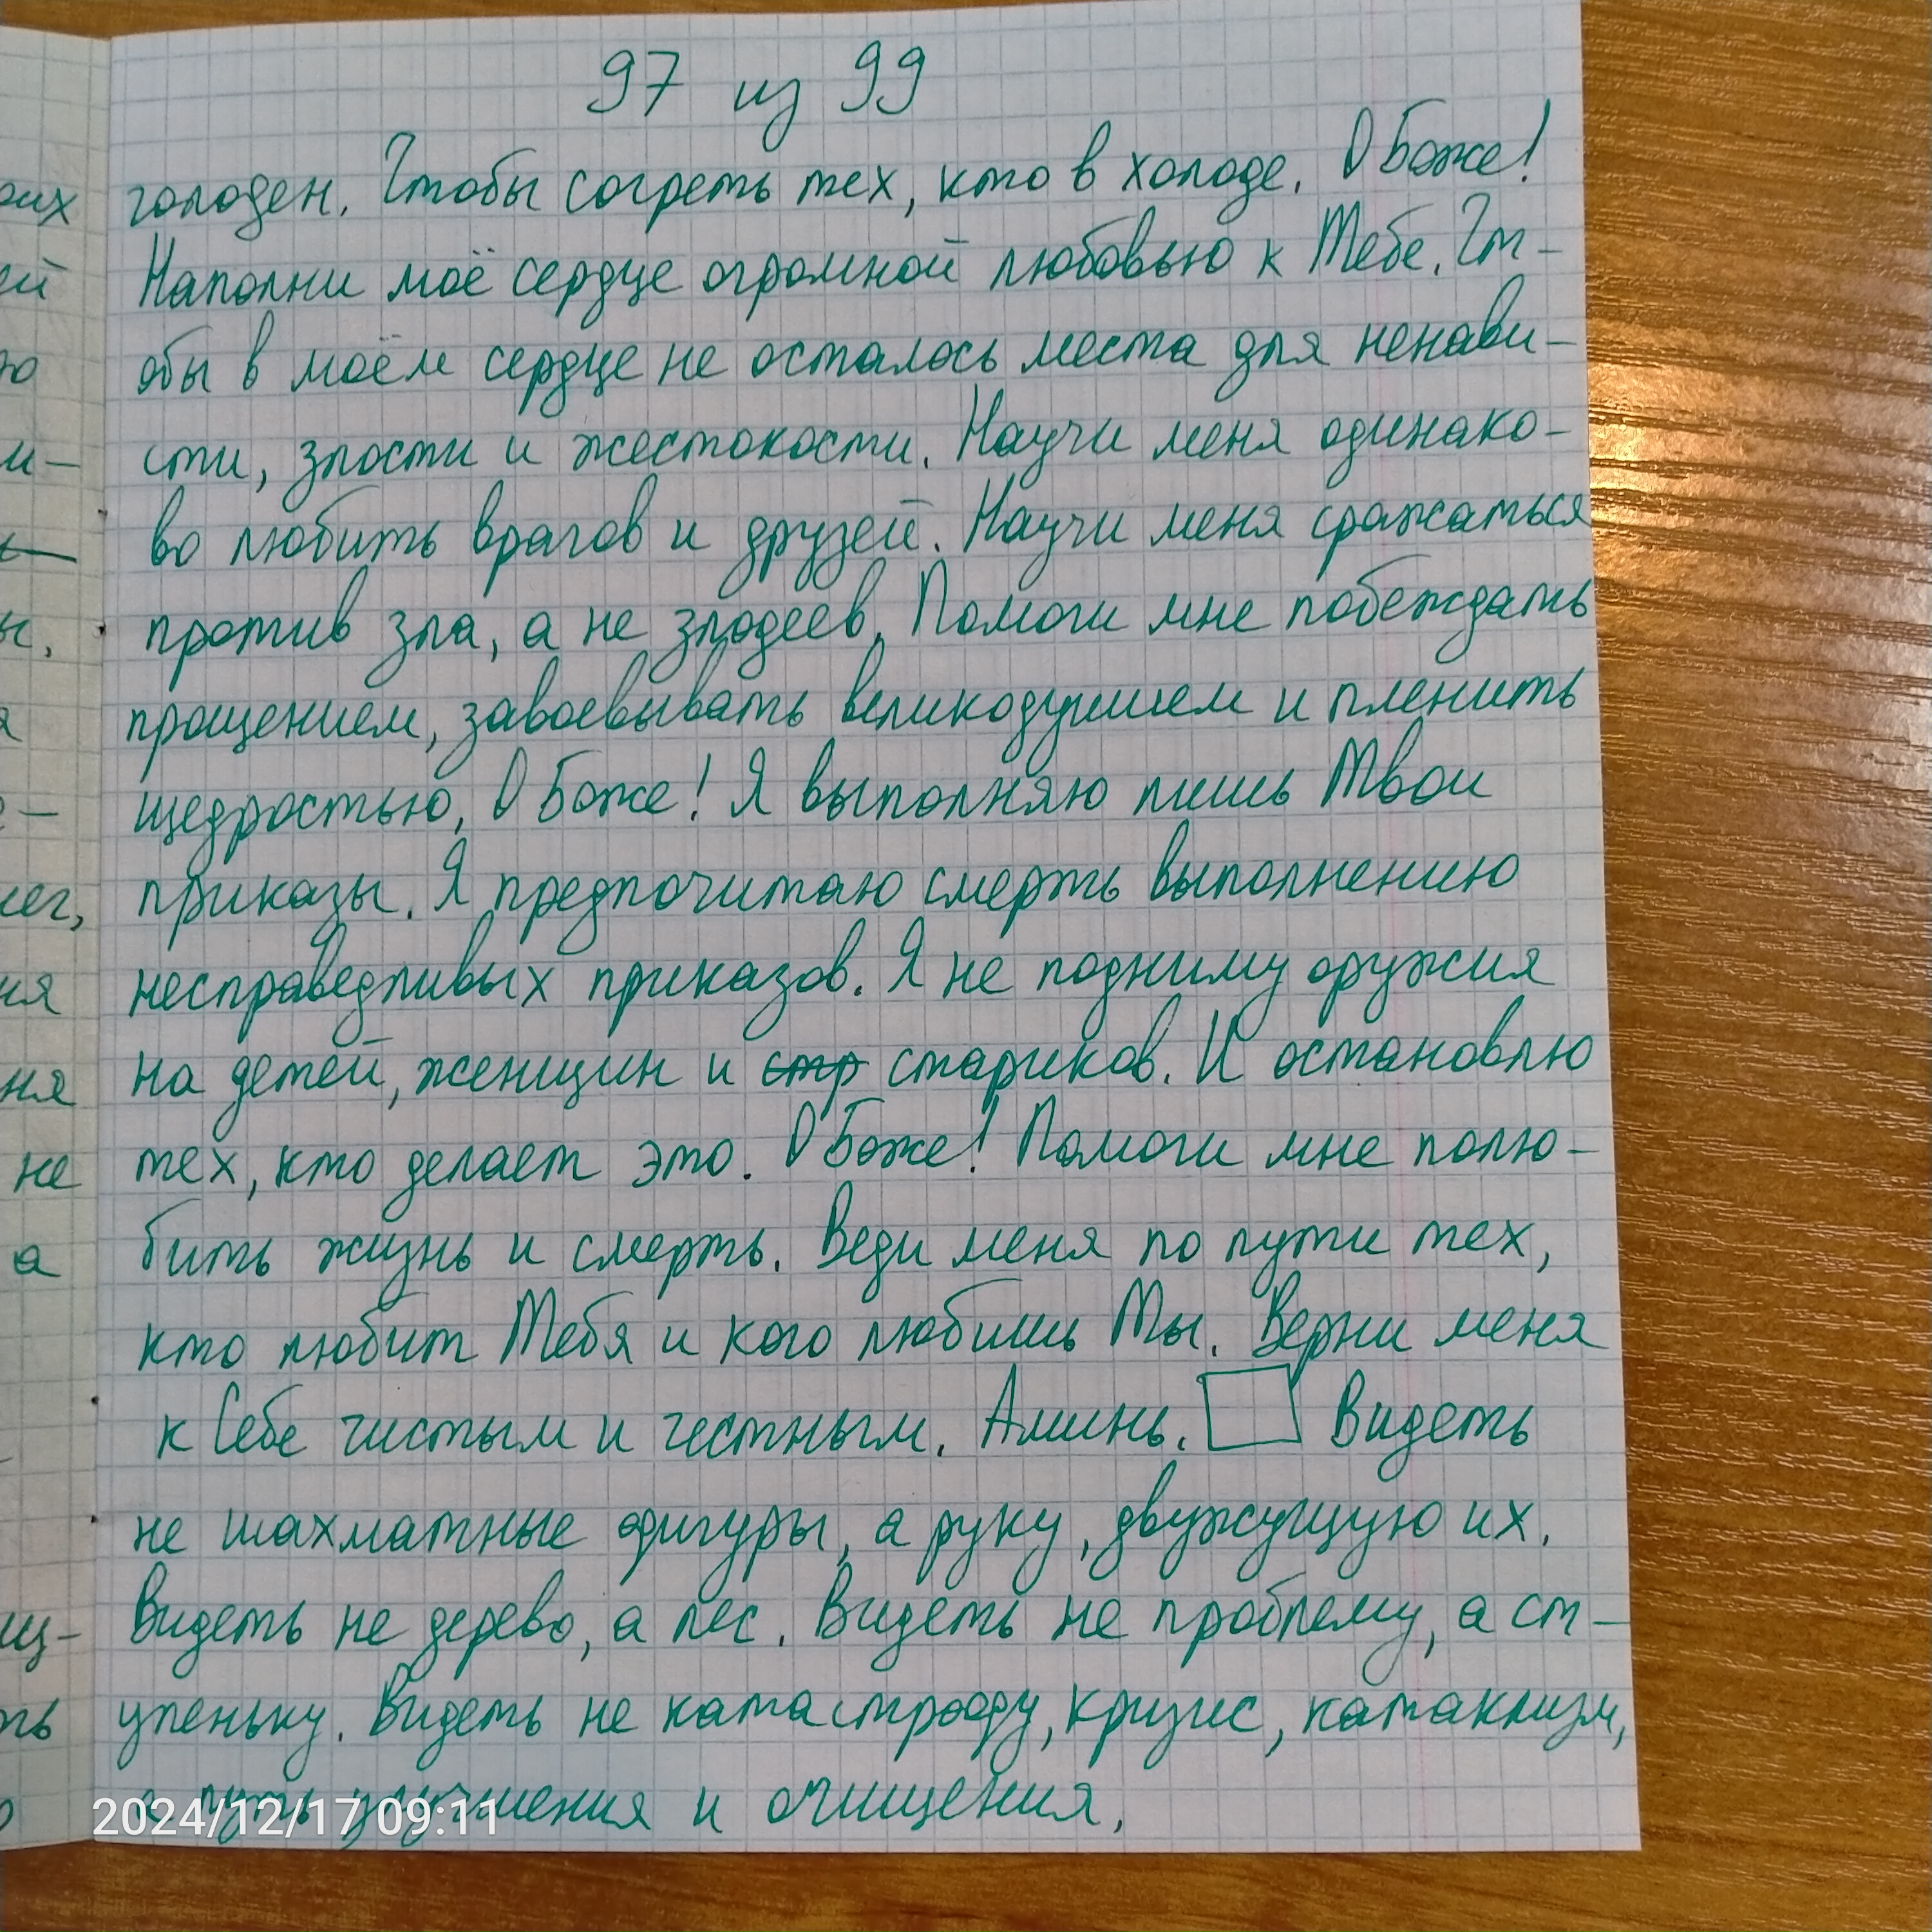 97 из 99
оих голоден. Чтобы согреть тех, кто в холоде. О Боже!
ей Наполни моё сердце огромной любовью к Тебе. Чт-
ю обы в моём сердце не осталось места для ненави-
и- сти, злости и жестокости. Научи меня одинако-
во любить врагов и друзей. Научи меня сражаться
ы. против зла, а не злодеев. Помоги мне побеждать
прощением, завоевывать великодушием и пленить
щедростью. О Боже! Я выполняю лишь Твои
приказы. Я предпочитаю смерть выполнению
ия несправедливых приказов. Я не подниму оружия
ня на детей, женщин и стр стариков. И остановлю
не тех, кто делает это. О Боже! Помоги мне полю-
а бить жизнь и смерть. Веди меня по пути тех,
кто любит Тебя и кого любишь Ты. Верни меня
к Себе чистым и честным. Аминь. Видеть
не шахматные фигуры, а руку, движущую их.
ищ- Видеть не дерево, а лес. Видеть не проблему, а ст-
ть упеньку. Видеть не катастрофу, кризис, катаклизм,
а путь улучшения и очищения.
2024/12/17 09:11